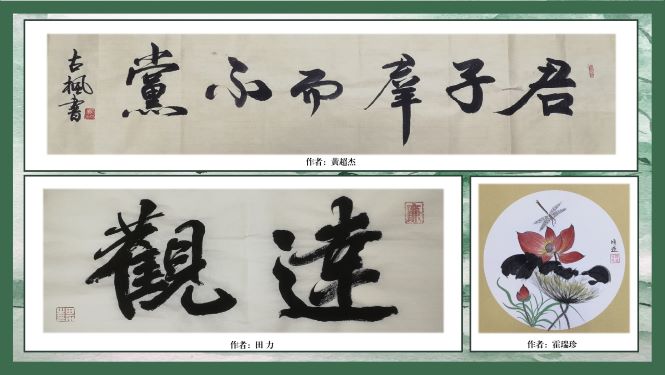 君子羣而不黨
古楓書
作者：黄超杰
達觀
作者：田 力
作者：霍瑞珍